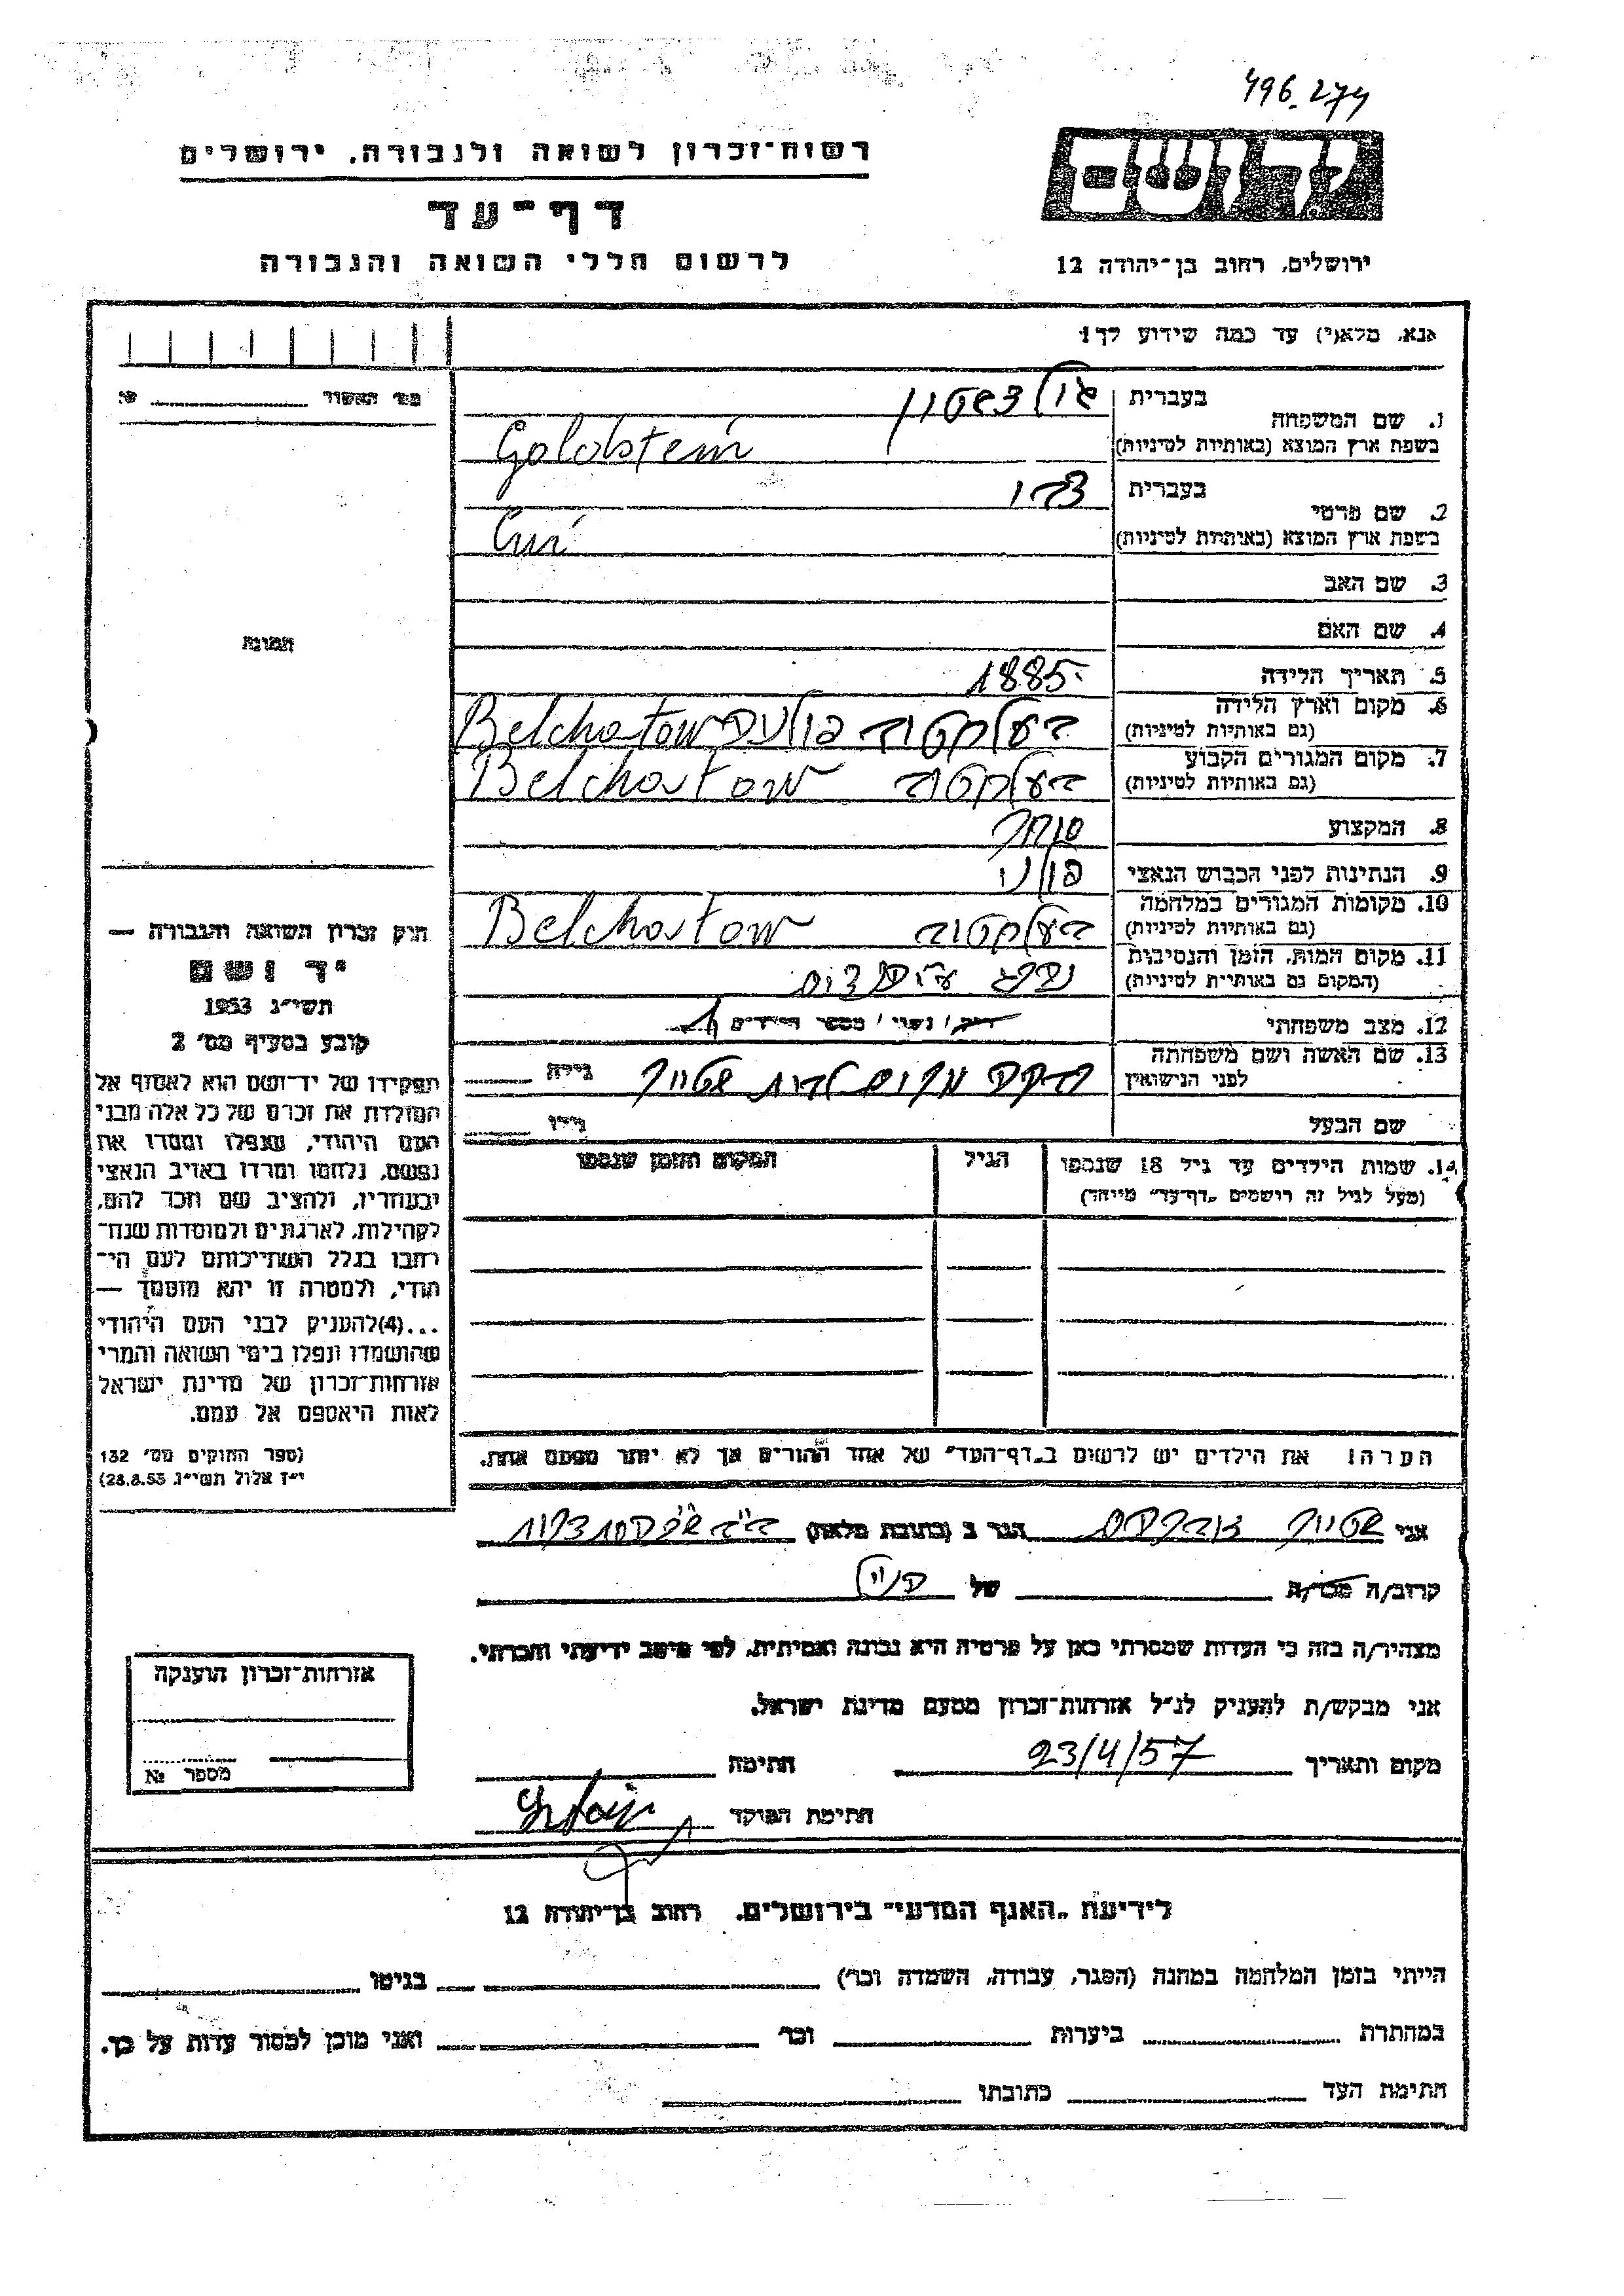 496.274
רשות־זכרון לשואה ולגבורה. ירושלים
יד ושם
דף־עד
לרשום חללי השואה והגבורה
ירושלים, רחוב בן־יהודה 12
אנא, מלא(י) עד כמה שידוע לך!
מס׳ האשור
1. שם המשפחה
בעברית גולדשטיין
בשפת ארץ המוצא (באותיות לטיניות) Goldstein
2. שם פרטי
בעברית
בשפת ארץ המוצא (באותיות לטיניות)
3. שם האב
4. שם האם
תמונה
5. תאריך הלידה 1885
6. מקום וארץ הלידה
(גם באותיות לטיניות) Belchatow
7. מקום המגורים הקבוע
(גם באותיות לטיניות) Belchatow
8. המקצוע סוחר
9. הנתינות לפני הכבוש הנאצי פולני
10. מקומות המגורים במלחמה
(גם באותיות לטיניות) Belchatow
11. מקום המות, הזמן והנסיבות
(המקום גם באותיות לטיניות)
12. מצב משפחתי רוק/ נשוי / מספר הילדים
13. שם האשה ושם משפחתה
לפני הנישואין
גילה
שם הבעל
גילו
14. שמות הילדים עד גיל 18 שנספו
(מעל לגיל זה רושמים „דף־עד״ מיוחד)
הגיל
המקום והזמן שנספו
הערה! את הילדים יש לרשום ב„דף־העד״ של אחד ההורים אך לא יותר מפעם אחת.
חוק זכרון השואה והגבורה —
יד ושם
תשי״ג 1953
קובע בסעיף מס׳ 2
תפקידו של יד־ושם הוא לאסוף אל
המולדת את זכרם של כל אלה מבני
העם היהודי, שנפלו ומסרו את
נפשם, נלחמו ומרדו באויב הנאצי
ובעוזריו, ולהציב שם וזכר להם,
לקהילות, לארגונים ולמוסדות שנח־
רבו בגלל השתייכותם לעם הי־
הודי, ולמטרה זו יהא מוסמך —
...(4)להעניק לבני העם היהודי
שהושמדו ונפלו בימי השואה והמרי
אזרחות־זכרון של מדינת ישראל
לאות היאספם אל עמם.
(ספר החוקים מס׳ 132
י״ז אלול תשי״ג 28.8.53)
אני שטיין הגר ב (כתובת מלאה)
קרוב/ה מכר/ה של
מצהיר/ה בזה כי העדות שמסרתי כאן על פרטיה היא נכונה ואמיתית, לפי מיטב ידיעתי והכרתי.
אני מבקש/ת להעניק לנ״ל אזרחות־זכרון מטעם מדינת ישראל.
מקום ותאריך 23/4/57 חתימה
חתימת הפוקד
אזרחות־זכרון הוענקה
מספר №
לידיעת „האגף המדעי״ בירושלים. רחוב בן־יהודה 12
הייתי בזמן המלחמה במחנה (הסגר, עבודה, השמדה וכו׳) בגיטו
במחתרת ביערות וכו׳ ואני מוכן למסור עדות על כך.
חתימת העד כתובתו